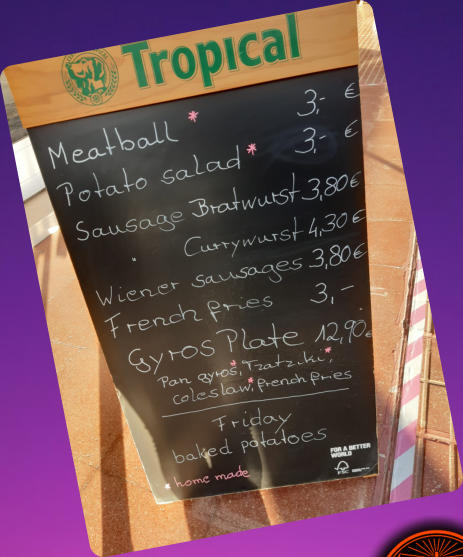 Tropical
Meatball * 3,- €
Potato salad * 3,- €
Sausage Bratwurst 3,80 €
" Currywurst 4,30 €
Wiener sausages 3,80 €
French fries 3,-
Gyros Plate 12,90 €
Pan gyros*, Tzatziki*,
coleslaw*, french fries
Friday
baked potatoes
* home made
FOR A BETTER
WORLD
FSC